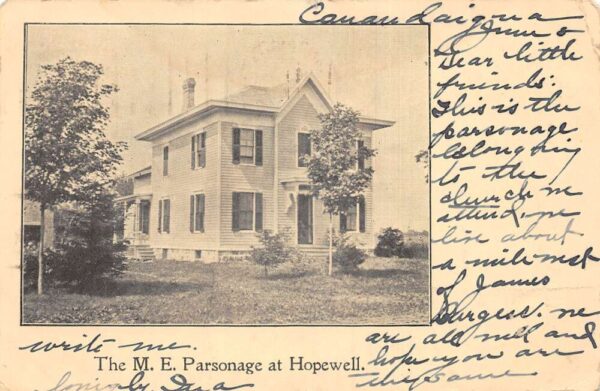 Canandaigua
June 8
Dear little
friends:
This is the
parsonage
belonging
to the
church we
attend, we
live about
a mile west
of James
Burgess. we
are all well and
hope you are
the same
write me.
The M. E. Parsonage at Hopewell.